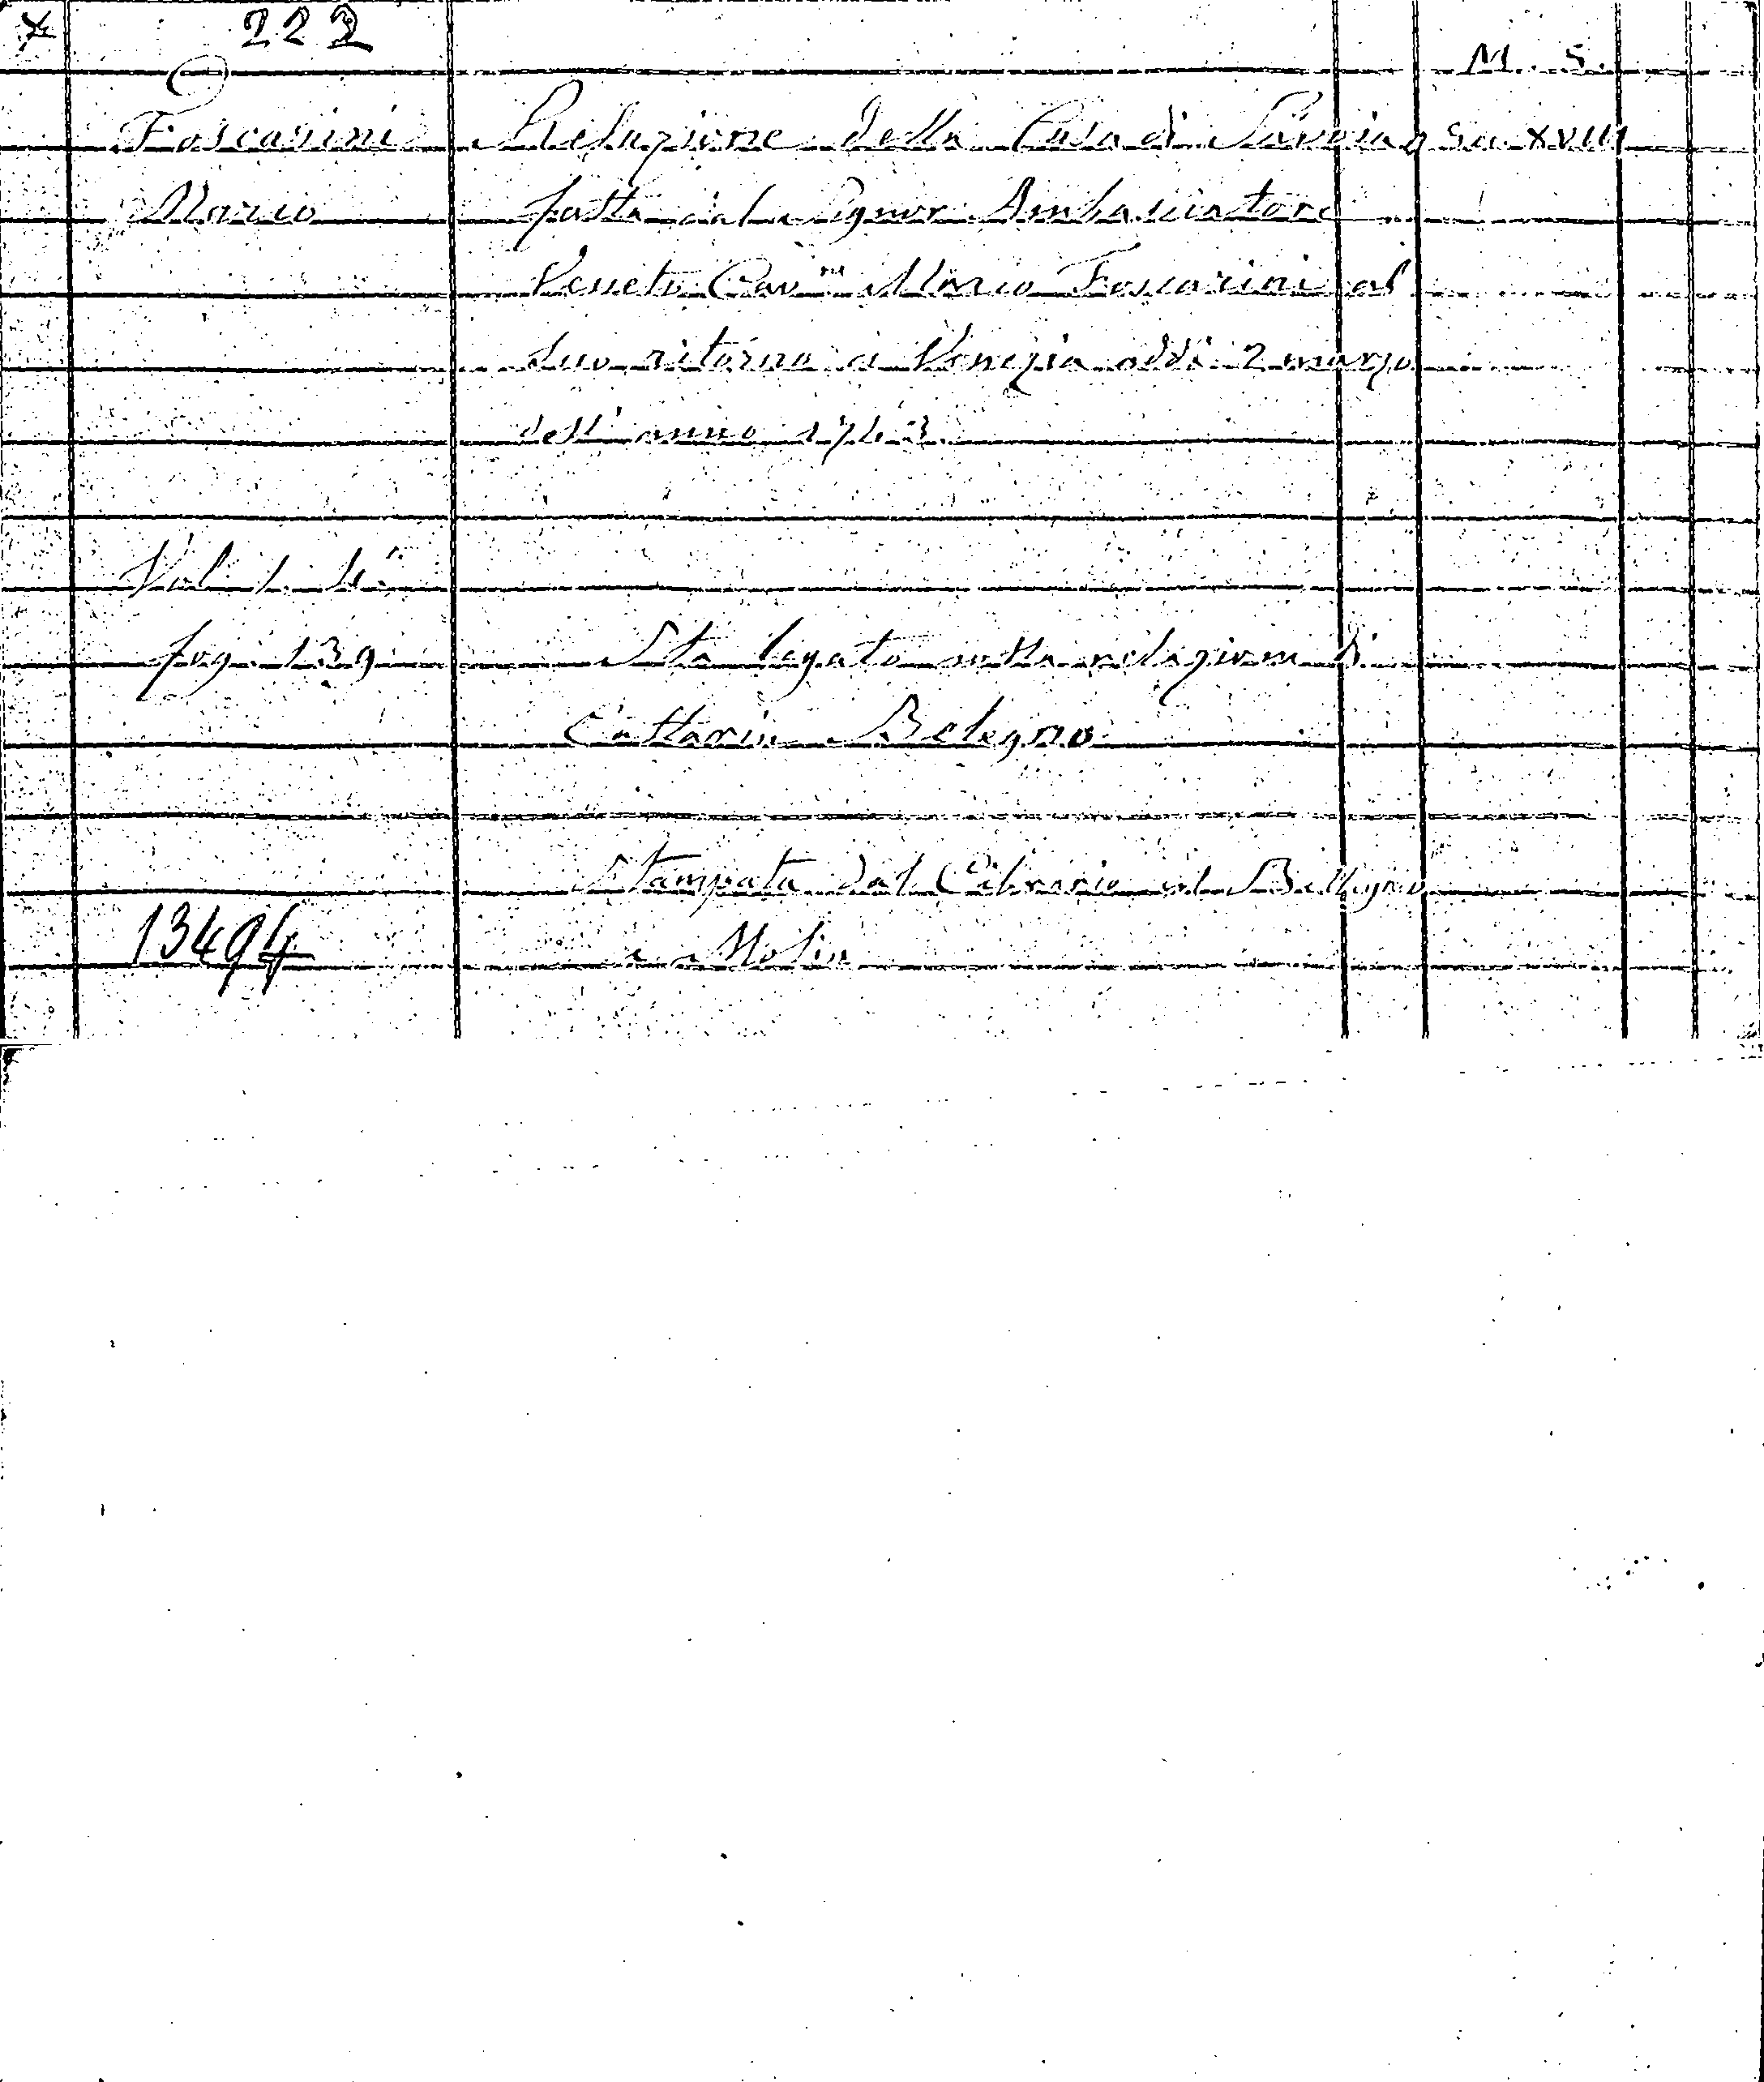 222
M. S.
Foscarini Relazione della Casa di Savoia Sec. XVIII
Marco fatta dal Signor Ambasciatore
Veneto Cav.re Marco Foscarini al
suo ritorno a Venezia addi 2 marzo
dell'anno 1743
Vol. 1. 4°
fog. 139 Sta legato colla relazione di
Cattarin Belegno
Stampata dal Cibrario col Bellegno
13494 e Molin